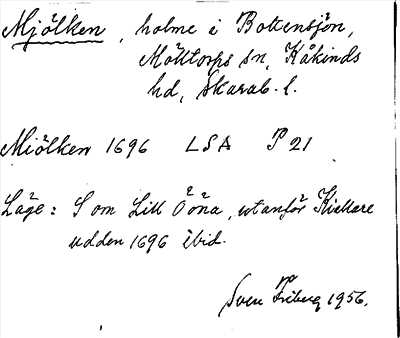 Mjölken, holme i Bottensjön,
Mölltorps sn, Kåkinds
hd, Skarab. l.
Miölken 1696 LSA P 21
Läge: S om Lill Öön̈a, utanför Kiekare
udden 1696 ibid.
Sven Friberg 1956.